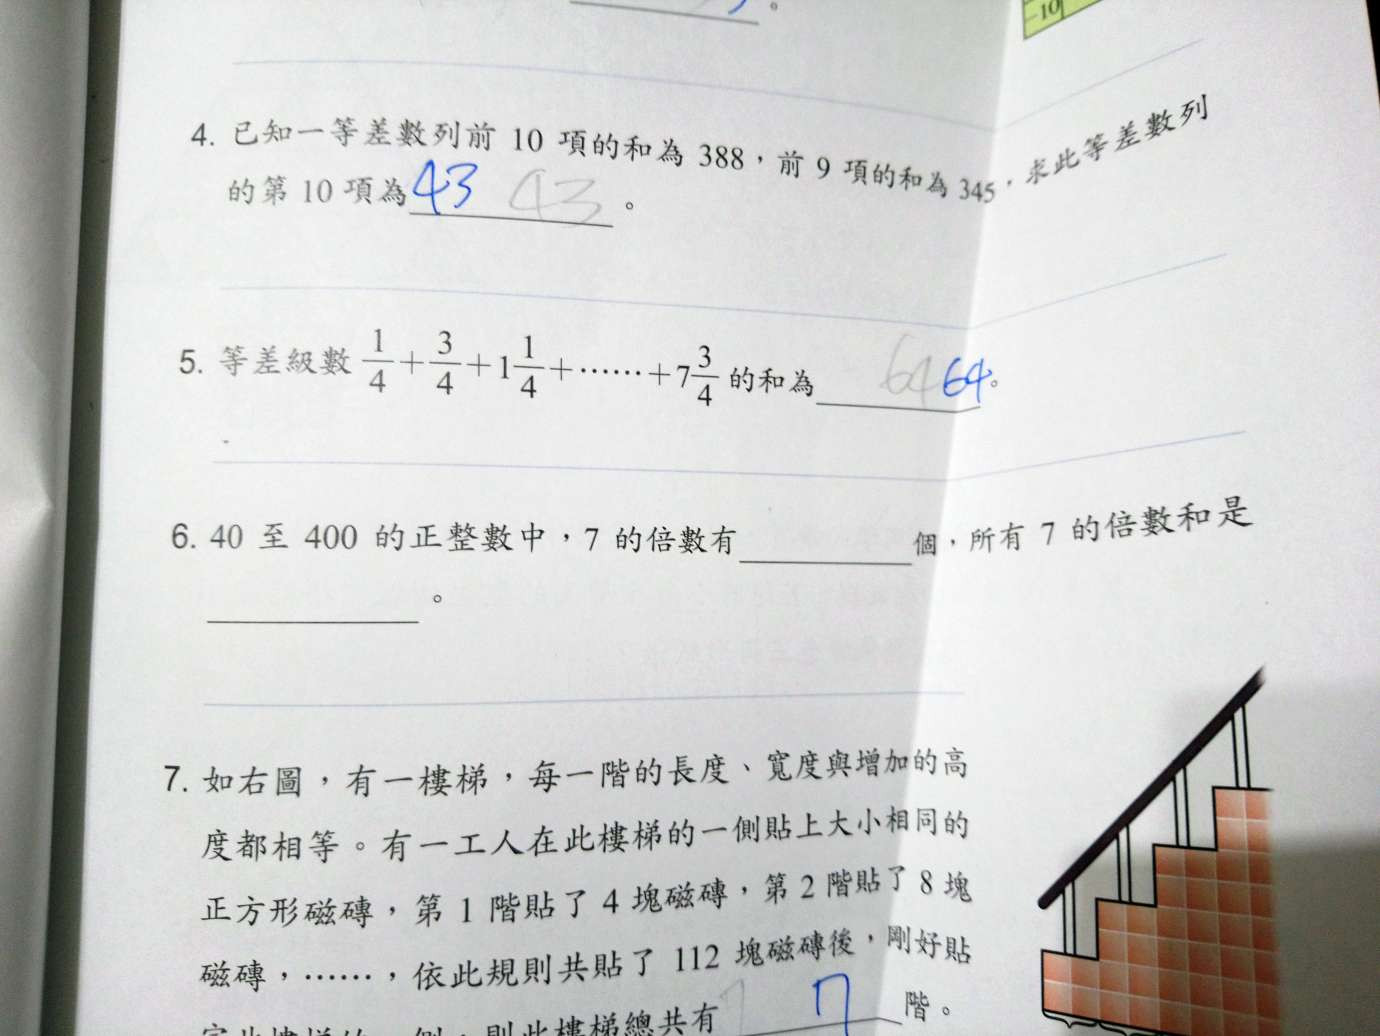 -10
4. 已知一等差數列前 10 項的和為 388，前 9 項的和為 345，求此等差數列
的第 10 項為 43 43 。
5. 等差級數 1/4 + 3/4 + 1 1/4 + …… + 7 3/4 的和為 64 64 。
6. 40 至 400 的正整數中，7 的倍數有______個，所有 7 的倍數和是
______。
7. 如右圖，有一樓梯，每一階的長度、寬度與增加的高
度都相等。有一工人在此樓梯的一側貼上大小相同的
正方形磁磚，第 1 階貼了 4 塊磁磚，第 2 階貼了 8 塊
磁磚，……，依此規則共貼了 112 塊磁磚後，剛好貼
完此樓梯的一側，則此樓梯總共有 7 7 階。